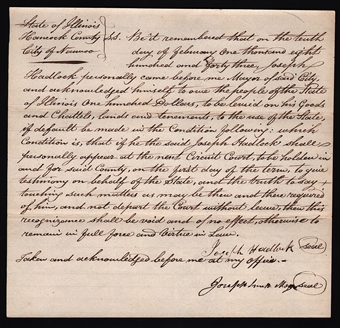 State of Illinois
Hancock County } Sct. Be it remembered that on the tenth
City of Nauvoo day of February one thousand eight
hundred and forty three, Joseph
Hadlock personally came before me Mayor of said City,
and acknowledged himself to owe the people of the State
of Illinois One hundred Dollars, to be levied on his Goods
and Chattels, lands and tenements, to the use of the State,
if default be made in the Condition following: which
Condition is, that if he the said Joseph Hadlock shall
personally appear at the next Circuit Court, to be holden in
and for said County, on the first day of the term, to give
testimony on behalf of the State, and the truth to say
touching such matters as may be then and there required
of him, and not depart the Court without leave; then this
recognizance shall be void and of no effect, otherwise to
remain in full force and Virtue in Law.
Joseph Hadlock seal
Taken and acknowledged before me at my office.
Joseph Smith Mayor seal